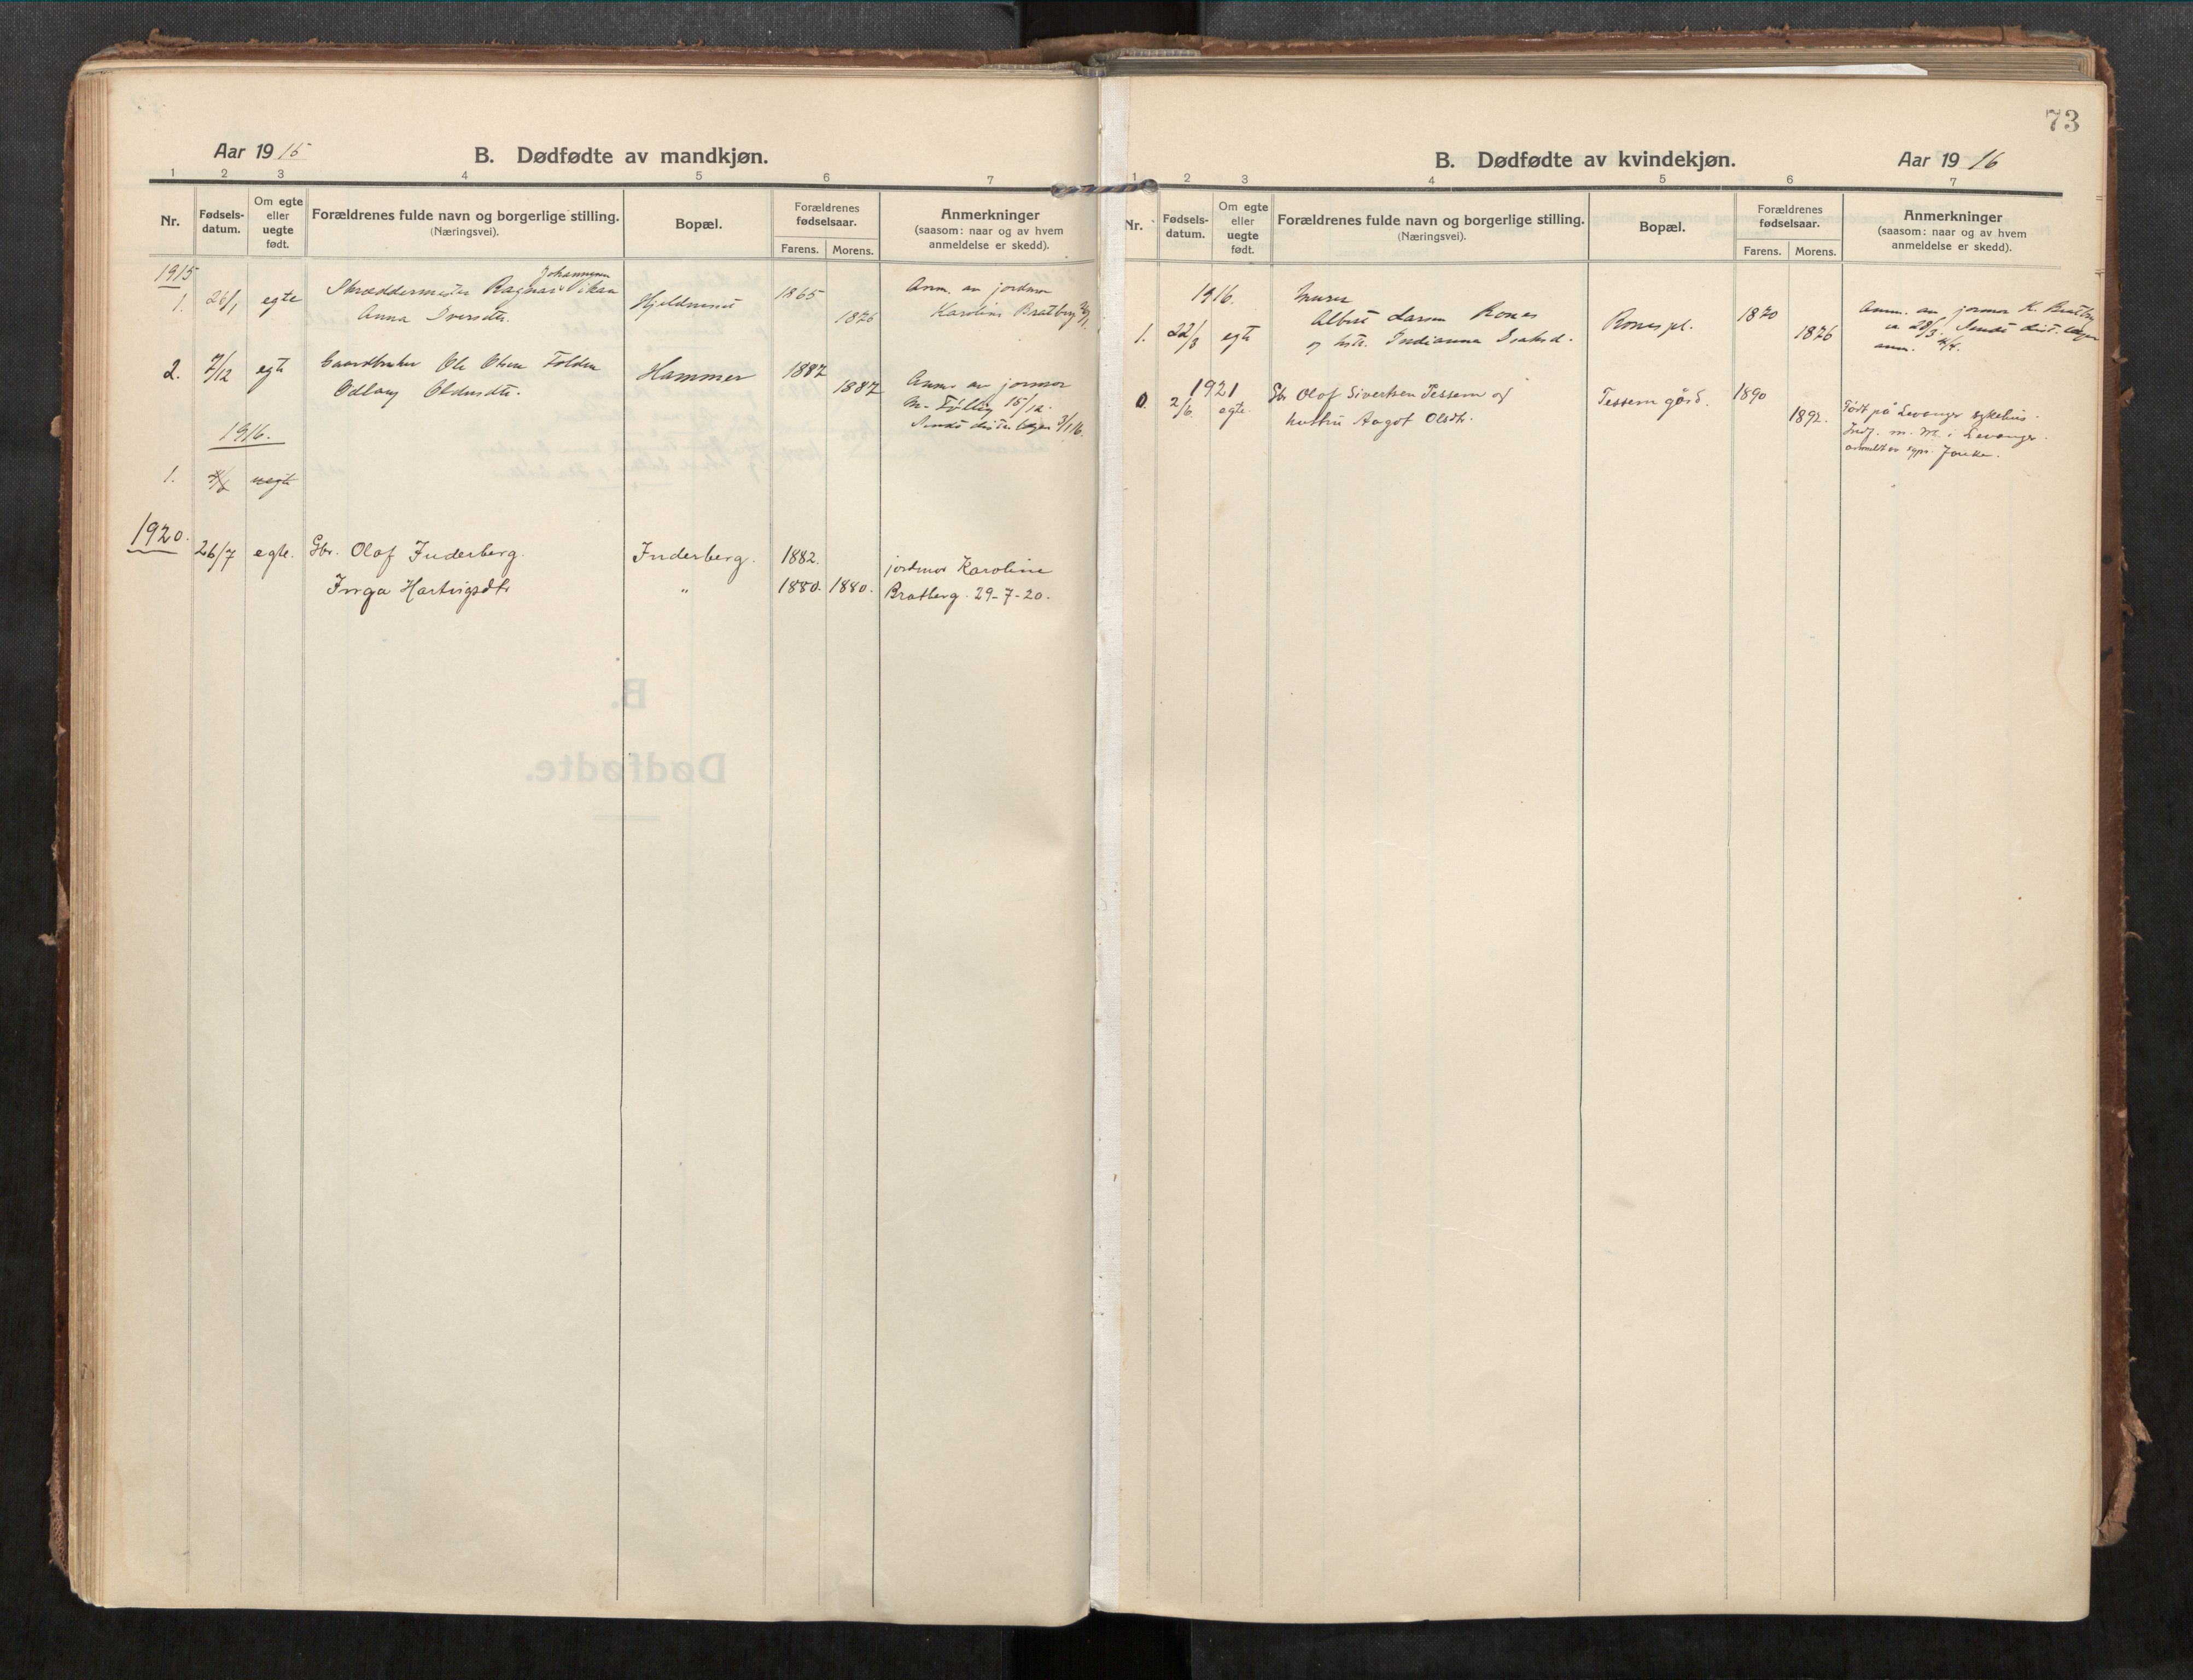 Aar 19 15
B. Dødfødte av mandkjøn.
1 2 3 4 5 6 7
Nr.
Fødsels-
datum.
Om egte
eller
uegte
født.
Forældrenes fulde navn og borgerlige stilling.
(Næringsvei).
Bopæl.
Forældrenes
fødselsaar.
Farens. Morens.
Anmerkninger
(saasom: naar og av hvem
anmeldelse er skedd).
1915
Johannesen
1. 26/1 egte Skræddermester Ragnar Vikan 1865 Anm. av jordmor
Anna Iversdtr. 1876 Karoline Bratberg
2. 7/12 egte Gaardbruker Ole Olsen Folden Hammer 1887
Odlaug 1887 Anm. av jormor
M. Følling 15/12.
Sendt distr. lægen 3/1 16.
1916.
1. uegte
1920.
26/7 egte. Gbr. Olaf Inderberg. Inderberg. 1882. jordmor Karoline
Inga Hartvigsdtr " 1880. 1880. Bratberg. 29-7-20.
73
B. Dødfødte av kvindekjøn.
Aar 19 16
1 2 3 4 5 6 7
Nr.
Fødsels-
datum.
Om egte
eller
uegte
født.
Forældrenes fulde navn og borgerlige stilling.
(Næringsvei).
Bopæl.
Forældrenes
fødselsaar.
Farens. Morens.
Anmerkninger
(saasom: naar og av hvem
anmeldelse er skedd).
1916. Murer
1. 22/3 egte Albert Larsen Rones Rones pl. 1870 Anm. av jormor K. Bratberg
og hstr. Indianna Isaksd. 1876 28/3. Sendt dist. lægen
anm. 4/4.
1921
0. 2/6. egte. Gbr Olof Sivertsen Tessem og Tessem gård. 1890
hustru Aagot Olsdtr. 1892. Født på Levanger sykehus.
Indf. m. M. i Levanger.
anmeldt av sgpr.